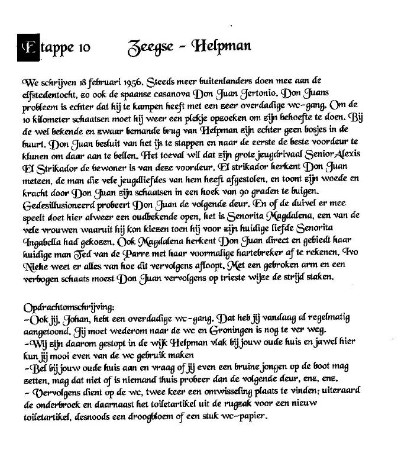 Etappe 10 Zeegse - Helpman
We schrijven 18 februari 1956. Steeds meer buitenlanders doen mee aan de
elfstedentocht, zo ook de spaanse casanova Don Juan Jertonio. Don Juans
probleem is echter dat hij te kampen heeft met een zeer overdadige wc-gang. Om de
10 kilometer schaatsen moet hij weer een plekje opzoeken om zijn behoefte te doen. Bij
de wel bekende en zwaar bemande brug van Helpman zijn echter geen bosjes in de
buurt. Don Juan besluit van het ijs te stappen en naar de eerste de beste voordeur te
klunen om daar aan te bellen. Het toeval wil dat zijn grote jeugdrivaal Senior Alexis
El Strikador de bewoner is van deze voordeur. El strikador herkent Don Juan
meteen, de man die vele jeugdliefdes van hem heeft afgestolen, en toont zijn woede en
kracht door Don Juan zijn schaatsen in een hoek van 90 graden te buigen.
Gedesillusioneerd probeert Don Juan de volgende deur. En of de duivel er mee
speelt doet hier alweer een oudbekende open, het is Senorita Magdalena, een van de
vele vrouwen waaruit hij kon kiezen toen hij voor zijn huidige liefde Senorita
Ingabella had gekozen. Ook Magdalena herkent Don Juan direct en gebiedt haar
huidige man Ted van de Parre met haar voormalige hartebreker af te rekenen. Ivo
Nieke weet er alles van hoe dit vervolgens afloopt. Met een gebroken arm en een
verbogen schaats moest Don Juan vervolgens op trieste wijze de strijd staken.
Opdrachtomschrijving:
-Ook jij, Johan, hebt een overdadige wc-gang. Dat heb jij vandaag al regelmatig
aangetoond. Jij moet wederom naar de wc en Groningen is nog te ver weg.
-Wij zijn daarom gestopt in de wijk Helpman vlak bij jouw oude huis en jawel hier
kun jij mooi even van de wc gebruik maken
-Bel bij jouw oude huis aan en vraag of jij even een bruine jongen op de boot mag
zetten, mag dat niet of is niemand thuis probeer dan de volgende deur, enz. enz.
- Vervolgens dient op de wc, twee keer een ontwisseling plaats te vinden; uiteraard
de onderbroek en daarnaast het toiletartikel uit de rugzak voor een nieuw
toiletartikel, desnoods een droogbloem of een stuk wc-papier.